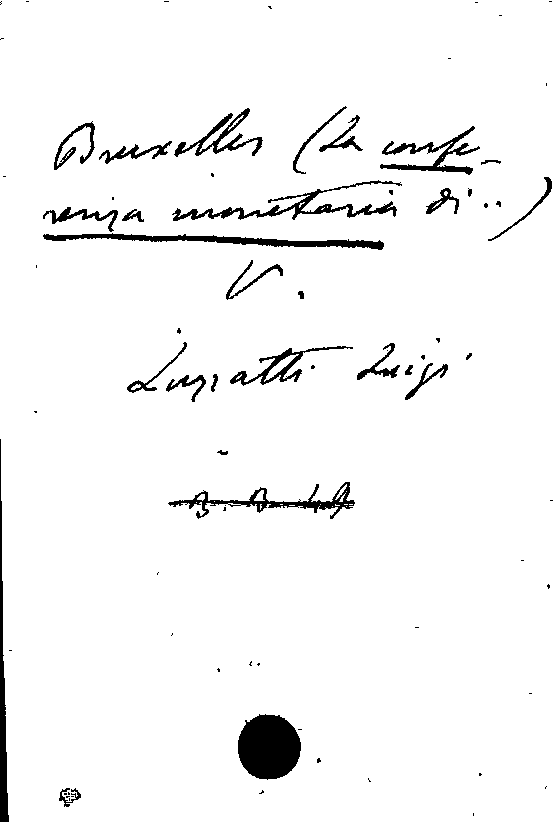 Bruxelles (La confe-
renza monetaria di..)
V.
Luzzatti Luigi
B. B. 49